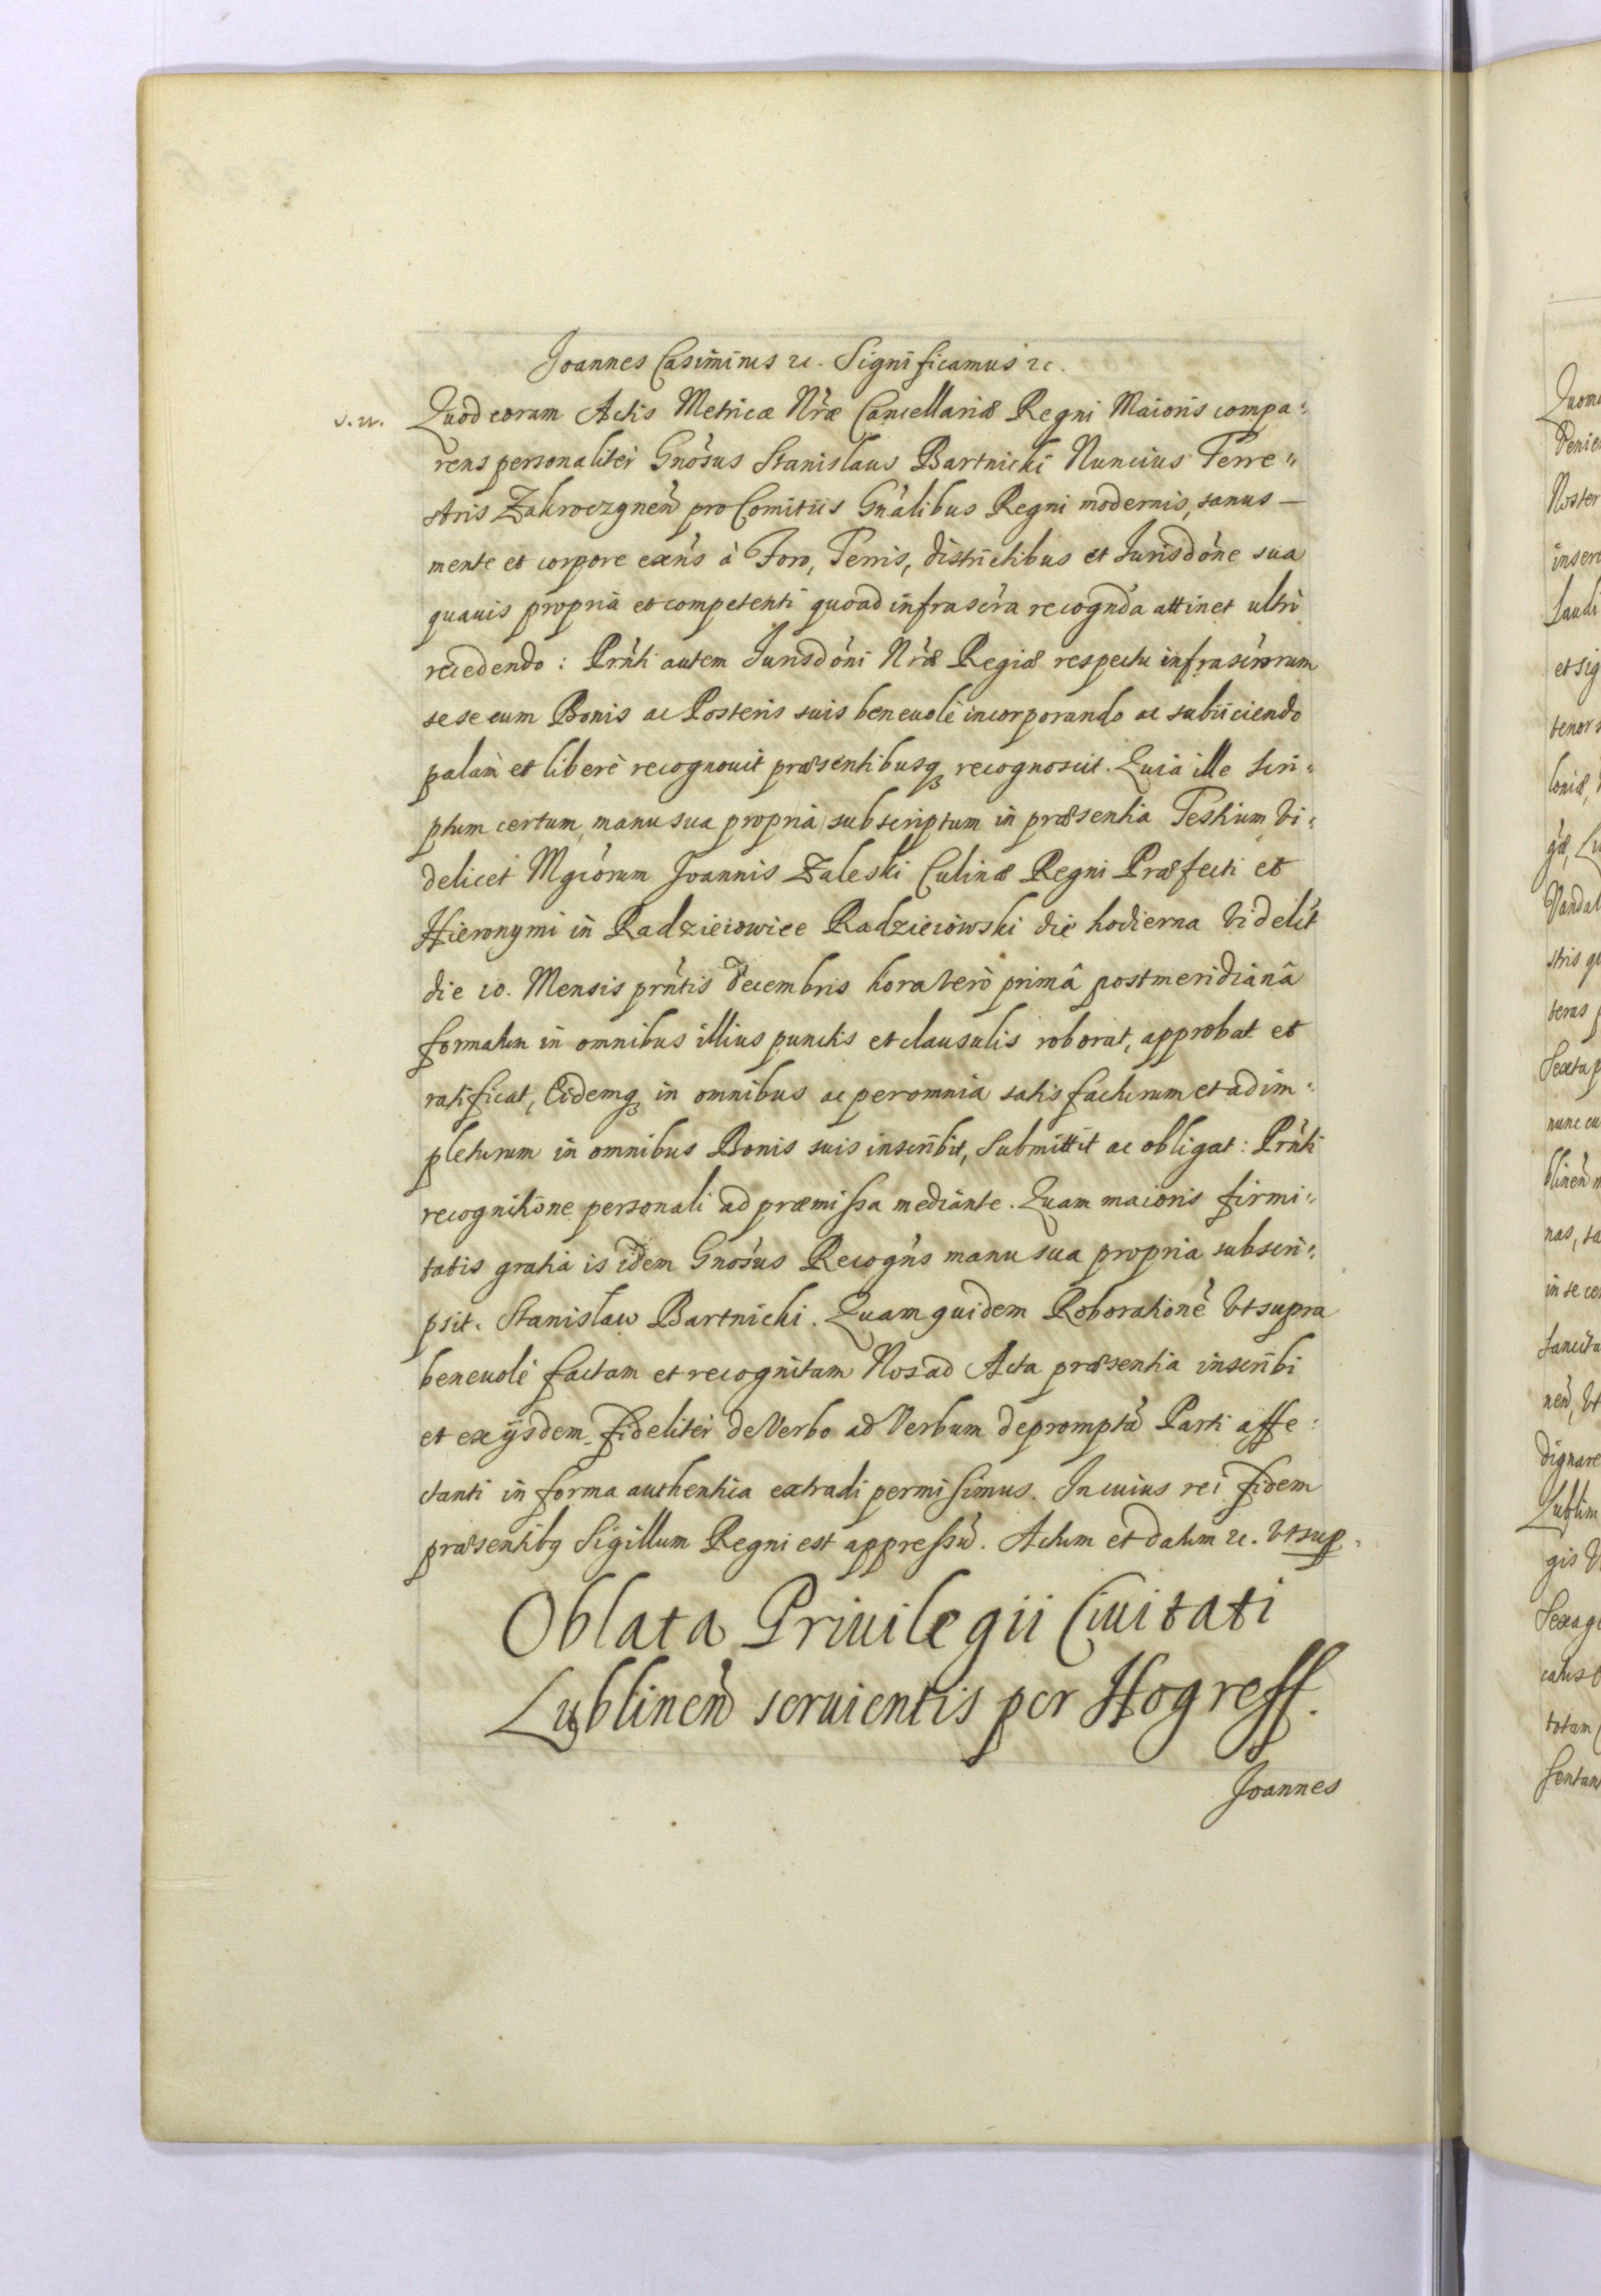 Joannes Casimirus etc. Significamus etc.
Quod coram Actis Metricæ Nr̃æ Cancellariæ Regni Maioris compa:
rens personaliter Gnõsus Stanislaus Bartnicki Nuncius Terre:
stris Zakroczymeñ pro Comitiis Gñalibus Regni modernis, sanus
mente et corpore exñs à Foro, Terris, districtibus et Jurisdõne sua
quauis propria et competenti quoad infrascr̃a recognoscẽda attinet ultrò
recedendo: Prñti autem Jurisdõni Nr̃æ Regiæ respectu infrascr̃orum
sese cum Bonis ac Posteris suis beneuolè incorporando ac subiiciendo
palàm et liberè recognouit præsentibusq recognoscit. Quia ille scri:
ptum certum, manu sua propria subscriptum in præsentia Testium vi:
delicet Mgcõrum Joannis Zaleski Culinæ Regni Præfecti et
Hieronymi in Radzieiowice Radzieiowski die hodierna videlt
die 10. Mensis prñtis decembris hora verò primâ postmeridianâ
formatum in omnibus illius punctis et clausulis roborat, approbat et
ratificat, Eidemq in omnibus ac per omnia satisfacturum et adim:
pleturum in omnibus Bonis suis inscribit, submittit ac obligat: Prñti
recognitione personali ad præmissa mediante. Quam maioris firmi:
tatis gratia is idem Gnõsus Recogñs manu sua propria subscri:
psit. Stanislaw Bartnicki. Quam quidem Roborationẽ vt supra
beneuolè factam et recognitam Nos ad Acta præsentia inscribi
et ex ijsdem fideliter de Verbo ad Verbum depromptã Parti affe:
ctanti in forma authentica extradi permisimus. In cuius rei fidem
præsentibq Sigillum Regni est appressũ. Actum et datum etc. vt sup.
Oblata Priuilegii Ciuitati
Lublineñ seruientis per Hogreff.
Joannes